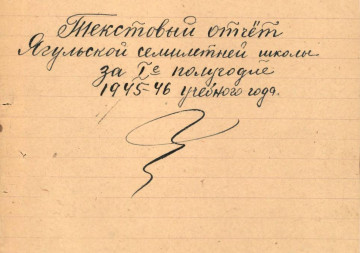 Текстовый отчёт
Ягульской семилетней школы
за Iе полугодие
1945-46 учебного года.